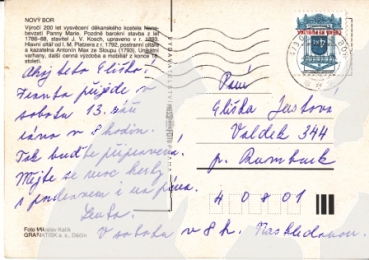 NOVÝ BOR
Výročí 200 let vysvěcení děkanského kostela Nane-
bevzetí Panny Marie. Pozdně barokní stavba z let
1786-88, stavitel J. V. Kosch, upravena v r. 1893.
Hlavní oltář od I. M. Platzera z r. 1792, postranní oltáře
a kazatelna Antonín Max ze Sloupu (1793), unikátní
varhany, další cenná výzdoba a mobiliář z konce 18.
století.
Ahoj teto Eliško!
Franta přijede v
sobotu 13. září
ráno v 8 hodin.
Tak buďte připraveni.
Mějte se moc hezky
s pozdravem i na
Foto Miloslav Kalík
GRAFIATISK a. s., Děčín
Paní
Eliška
Valdek 344
p. Rumburk
40801
V sobotu v 8 h. Naschledanou.